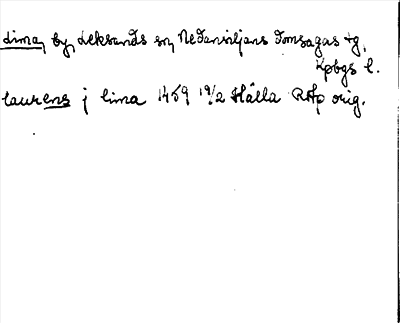 Lima, by, Leksands sn, Nedansiljans domsagas tg,
Kpbgs l.
laurens j lima 1459 19/2 Hälla RAp orig.